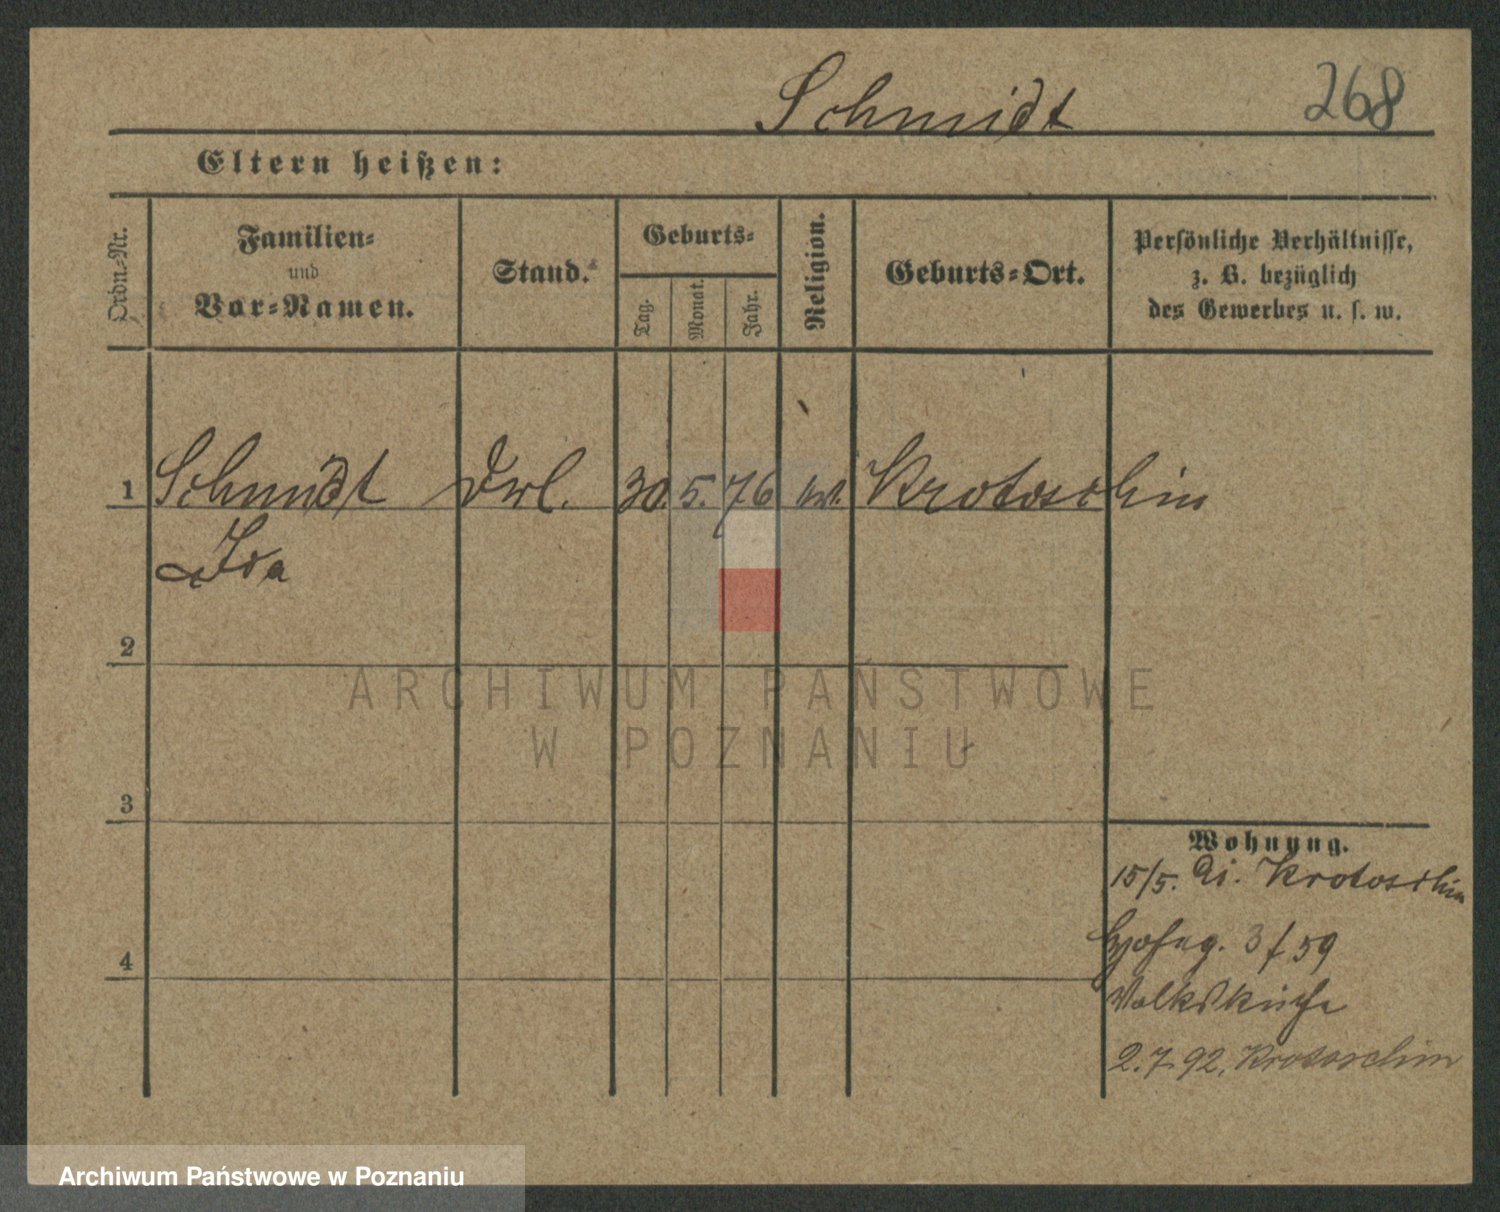 Schmidt 268
Eltern heißen:
Ordn.-Nr.
Familien-
und
Vor-Namen.
Stand.
Geburts-
Tag.
Monat.
Jahr.
Religion.
Geburts-Ort.
Persönliche Verhältnisse,
z. B. bezüglich
des Gewerbes u. s. w.
1 Schmidt 30. 5. 76 Krotoschin
Ida
2
ARCHIWUM PAŃSTWOWE
W POZNANIU
3
Wohnung.
15/5. Krotoschin
3/59
4
Volksküche
2.7.92, Krotoschin
Archiwum Państwowe w Poznaniu